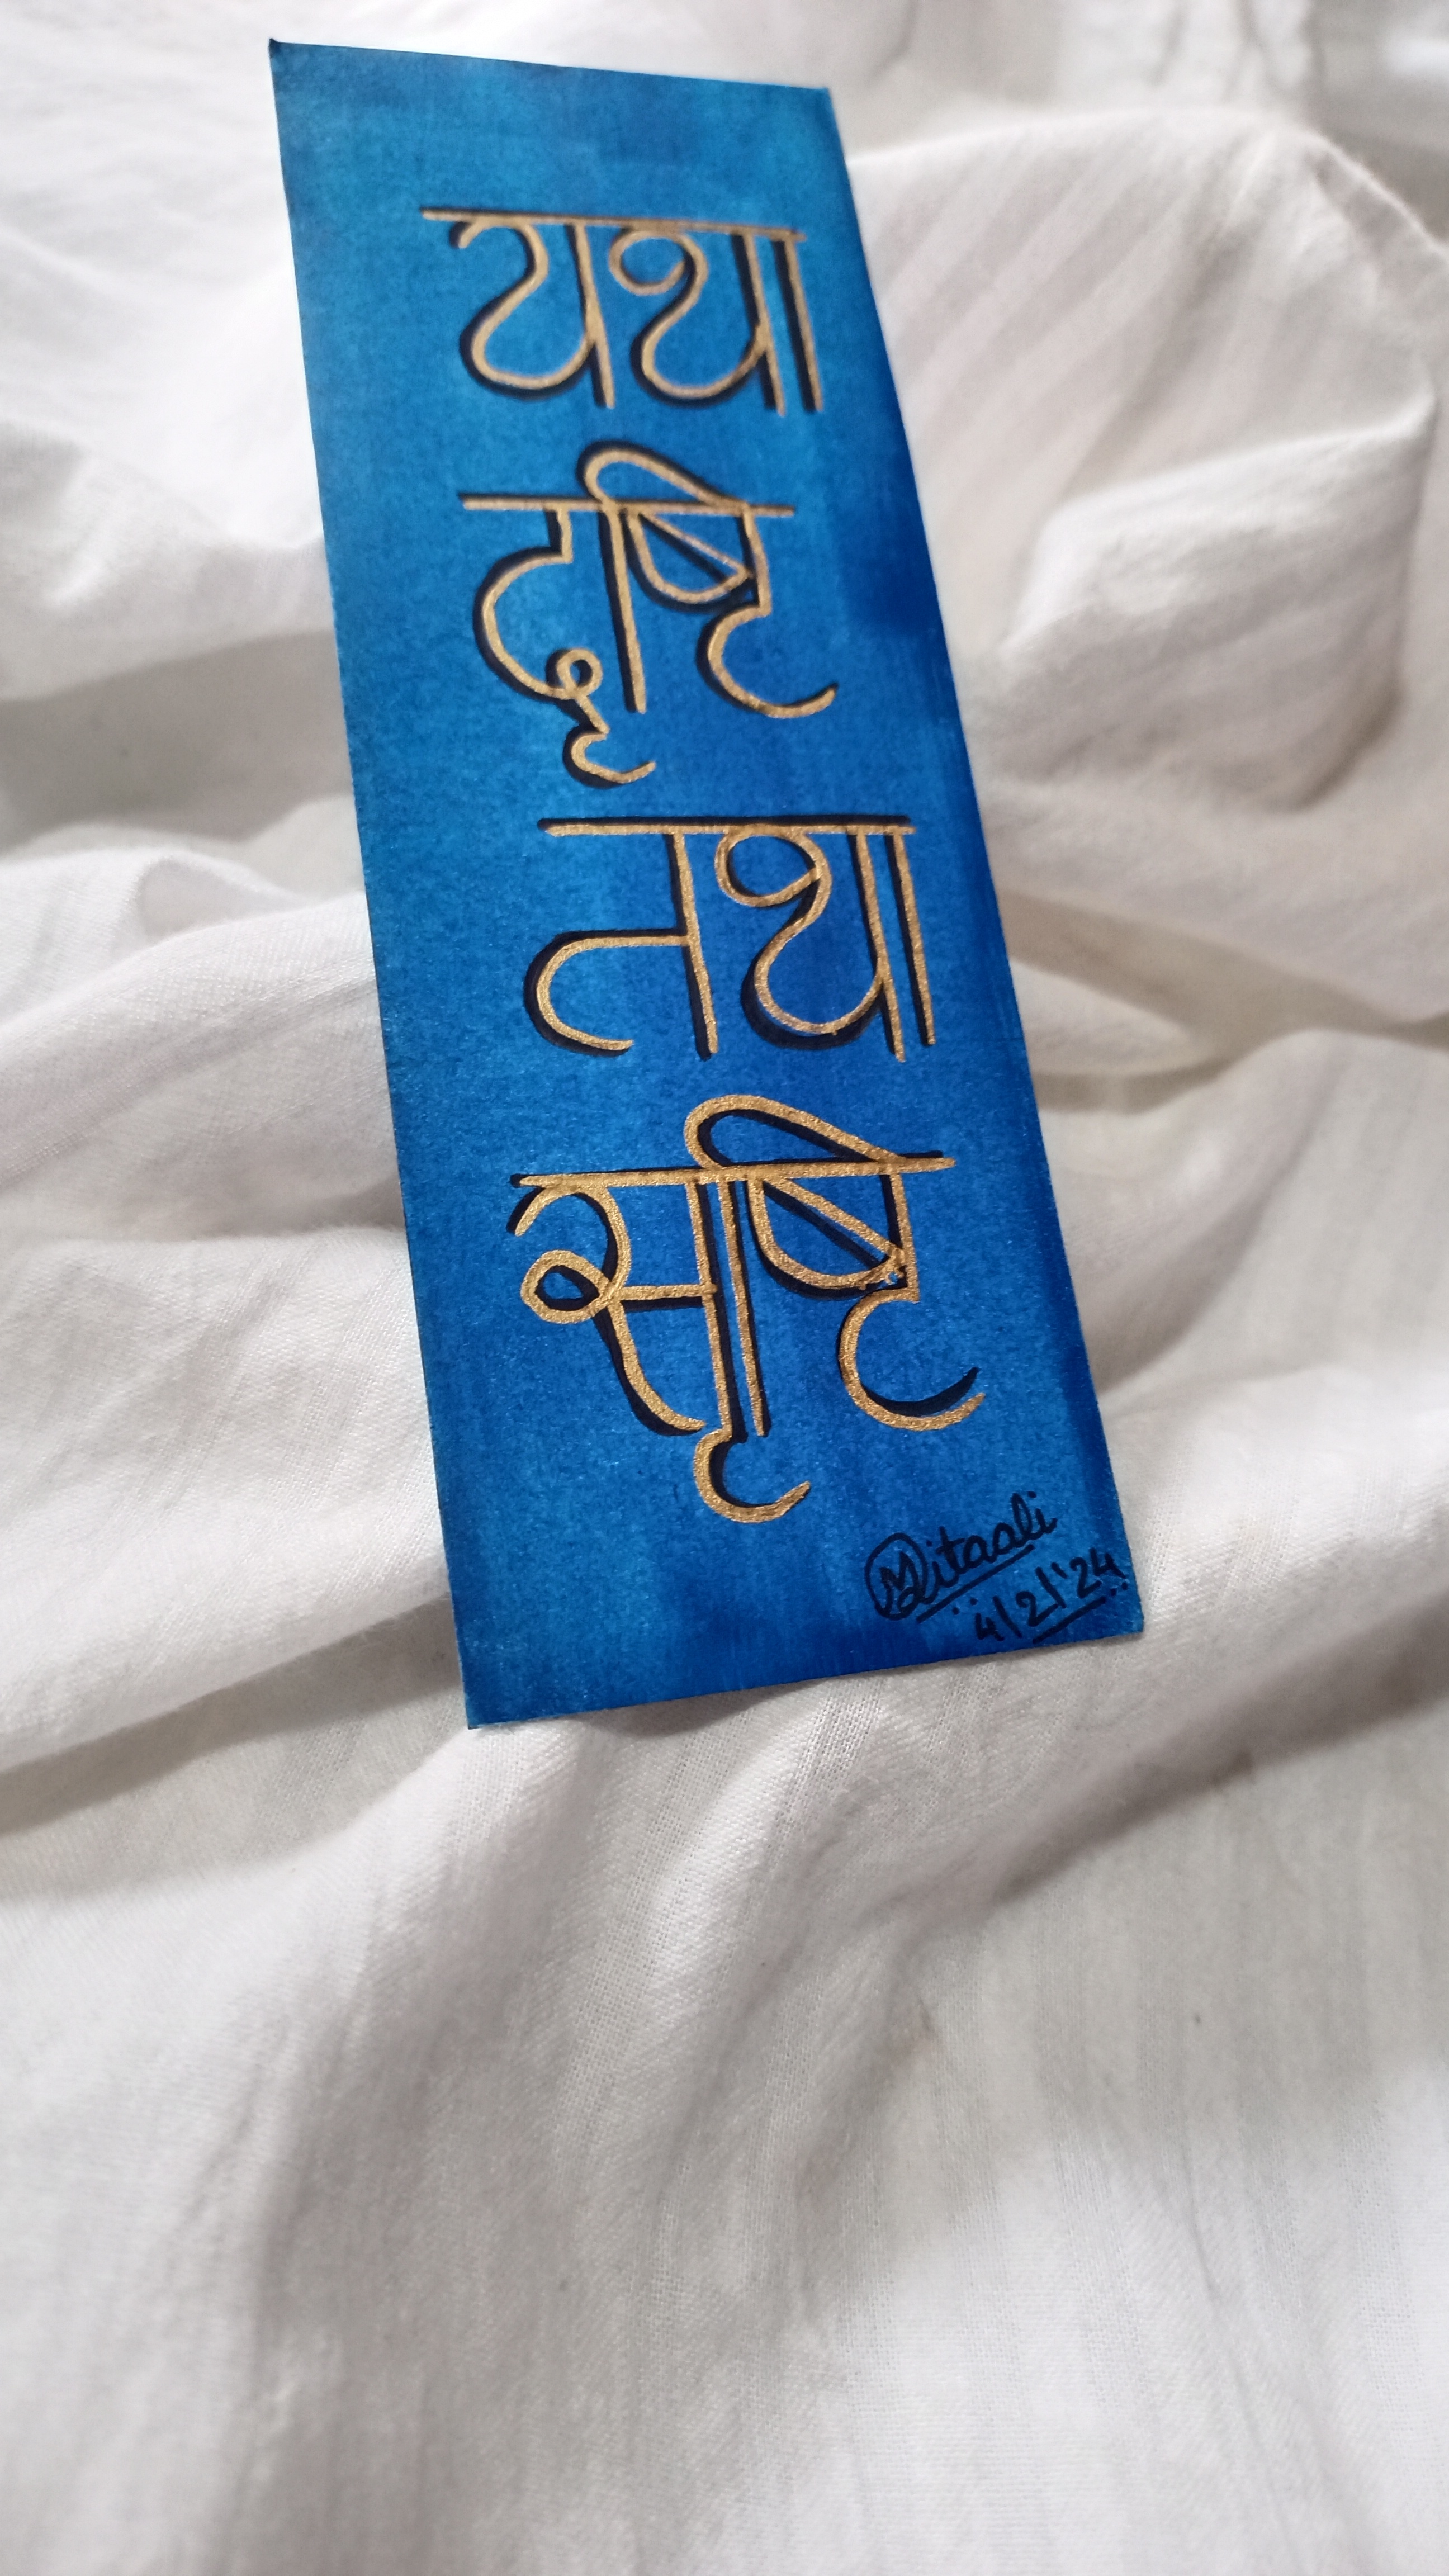 यथा
दृष्टि
तथा
सृष्टि
Mitaali
4/2/'24